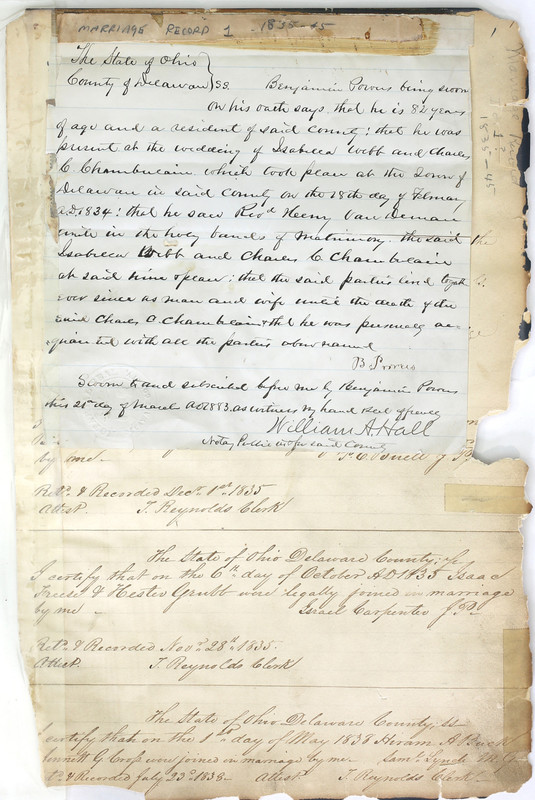 MARRIAGE RECORD 1 1835-45
1835-45
The State of Ohio
County of Delaware } SS. Benjamin Powers being sworn
on his oath says that he is 82 years
of age and a resident of said County; that he was
present at the wedding of Isabella Webb and Charles
C. Chamberlain which took place at the Town of
Delaware in said County on the 18th day of February
A.D. 1834; that he saw Revd Henry Van Deman
unite in the holy bands of Matrimony the said
Isabella Webb and Charles C Chamberlain
at said time & place; that the said parties lived together
ever since as man and wife until the death of the
said Charles C. Chamberlain & that he was personally ac-
quainted with all the parties above named
B Powers
Sworn to and subscribed before me by Benjamin Powers
this 28 day of March AD 1883. as witness my hand & seal of
William A. Hall
Notary Public in & for said County
by me - J. C. J. P.
Retd & Recorded Decr 1st 1835
Attest. T. Reynolds Clerk
The State of Ohio Delaware County, ss
I certify that on the 6th day of October AD 1835 Isaac
Freese & Hester Grubb were legally joined in marriage
by me - Israel Carpenter J P.
Retd & Recorded Novr 28th 1835.
Attest. T. Reynolds Clerk
The State of Ohio Delaware County, ss
I certify that on the day of May 1838 Hiram A Buck
G. were joined on marriage by me Saml Lynch
& Recorded July 23d 1838 - Attest T. Reynolds Clerk